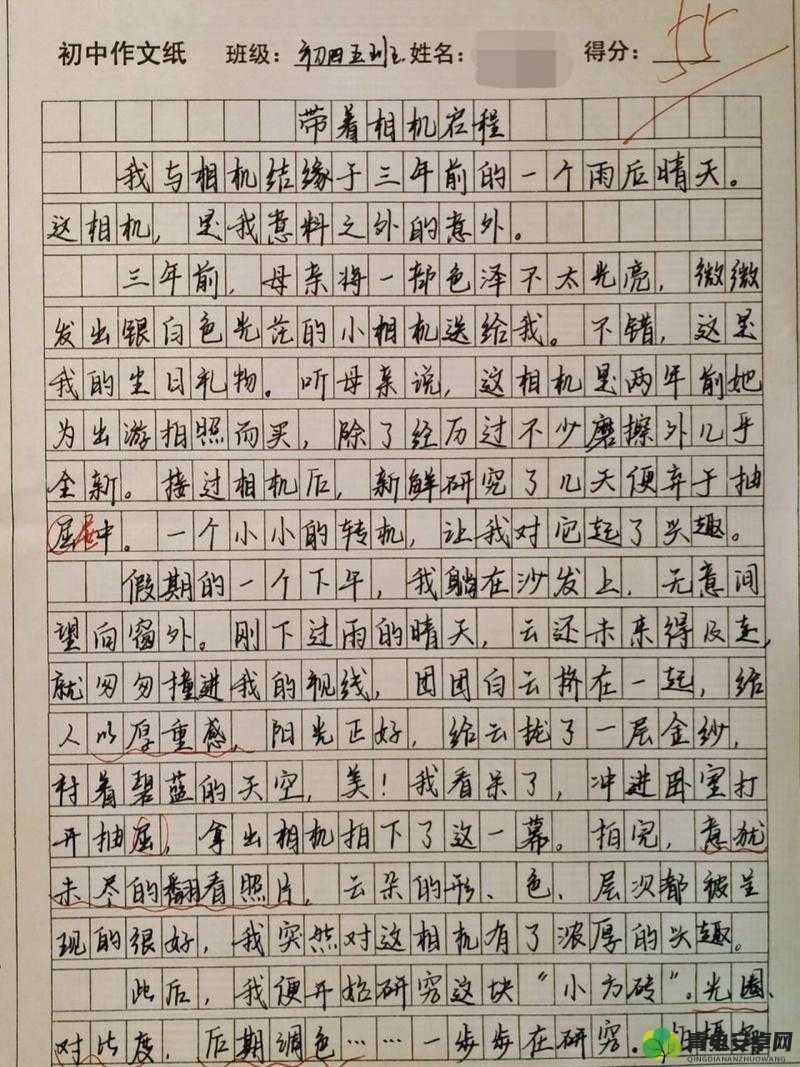 初中作文纸 班级：初四五班 姓名： 得分：55
带着相机启程
我与相机结缘于三年前的一个雨后晴天。
这相机，是我意料之外的意外。
三年前，母亲将一部色泽不太光亮，微微
发出银白色光茫的小相机送给我。不错，这是
我的生日礼物。听母亲说，这相机是两年前她
为出游拍照而买，除了经历过不少磨擦外几乎
全新。接过相机后，新鲜研究了几天便弃于抽
屉中。一个小小的转机，让我对它起了兴趣。
假期的一个下午，我躺在沙发上，无意间
望向窗外。刚下过雨的晴天，云还未来得及走，
就匆匆撞进我的视线，团团白云挤在一起，给
人以厚重感，阳光正好，给云拢了一层金纱，
衬着碧蓝的天空，美！我看呆了，冲进卧室打
开抽屉，拿出相机拍下了这一幕。拍完，意犹
未尽的翻看照片，云朵的形、色、层次都被呈
现的很好，我突然对这相机有了浓厚的兴趣。
此后，我便开始研究这块“小方砖”。光圈、
对比度，后期调色……一步步在研究。
青兔安卓网
QINGDIANANZHUOWANG